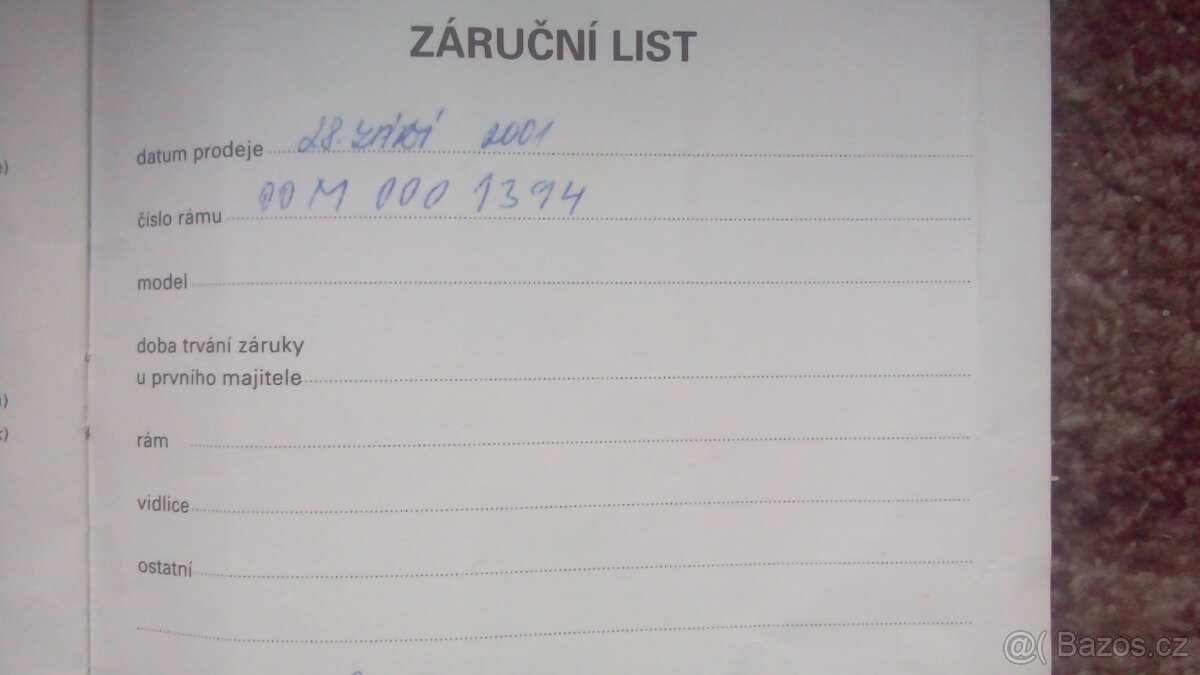 ZÁRUČNÍ LIST
datum prodeje 28. ZÁŘÍ 2001
číslo rámu 00 M 000 1394
model
doba trvání záruky
u prvního majitele
rám
vidlice
ostatní
@( Bazos.cz